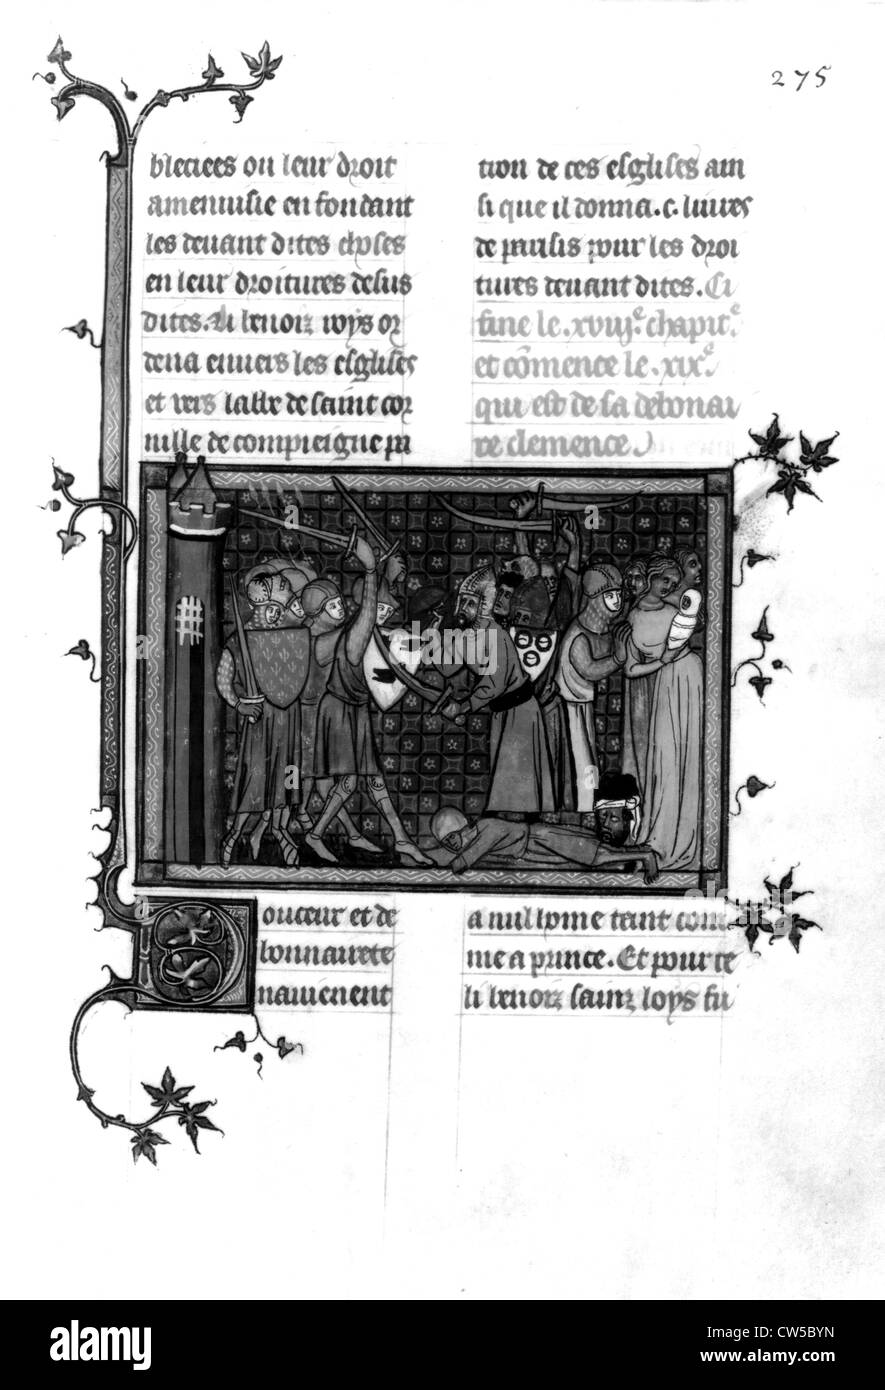 275
bleciees ou leur droit
amenuisie en fondant
les deuant dites choses
en leur droitures desus
dites. Li benoiz roys or
dena enuers les esglises
et vers labbe de saint cor
nille de compieigne pa
tion de ces esglises ain
si que il donna .c. liures
de parisis pour les droi
tures deuant dites. Ci
fine le .xviij.e chapit.e
et cōmence le .xix.e
qui est de sa debonai
re clemence
Douceur et de
bonnairete
nauienent
a nul home tant com
me a prince. Et pour ce
li benoiz sainz loys fu
alamy
Image ID: CW5BYN
www.alamy.com